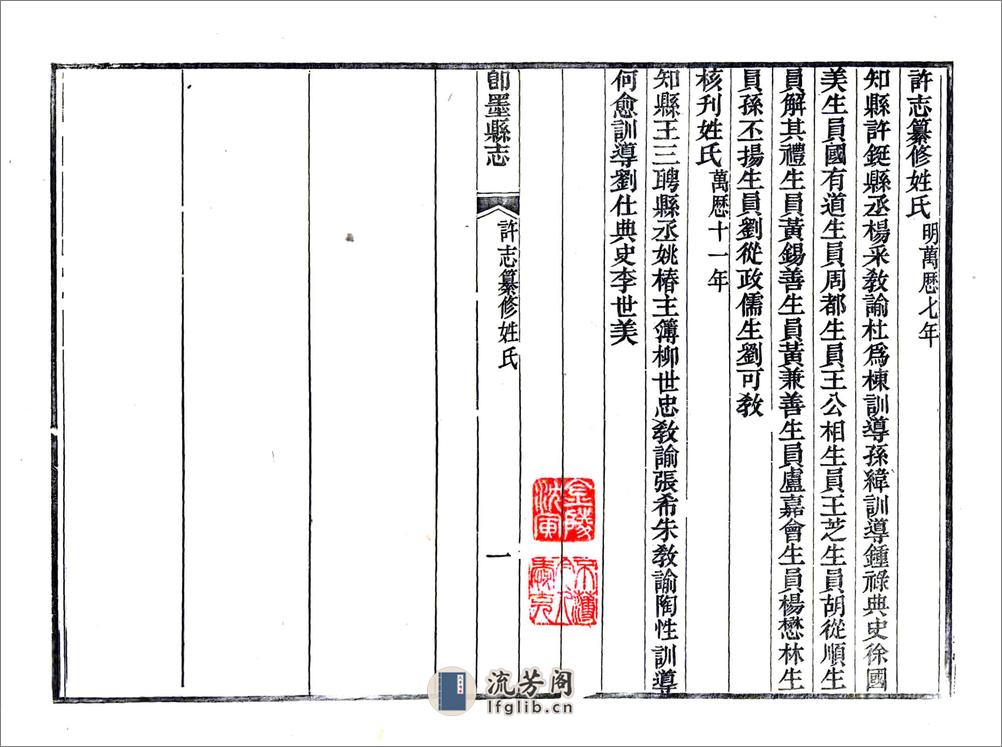 許志纂修姓氏 明萬曆七年
知縣許鋌縣丞楊采敎諭杜爲棟訓導孫緯訓導鍾祿典史徐國
美生員國有道生員周都生員王公相生員王芝生員胡從順生
員解其禮生員黃錫善生員黃兼善生員盧嘉會生員楊懋林生
員孫丕揚生員劉從政儒生劉可敎
核刋姓氏 萬曆十一年
知縣王三聘縣丞姚椿主簿柳世忠敎諭張希朱敎諭陶性訓導
何愈訓導劉仕典史李世美
卽墨縣志
許志纂修姓氏
一
金陵
沈寅
流芳阁
lfglib.cn